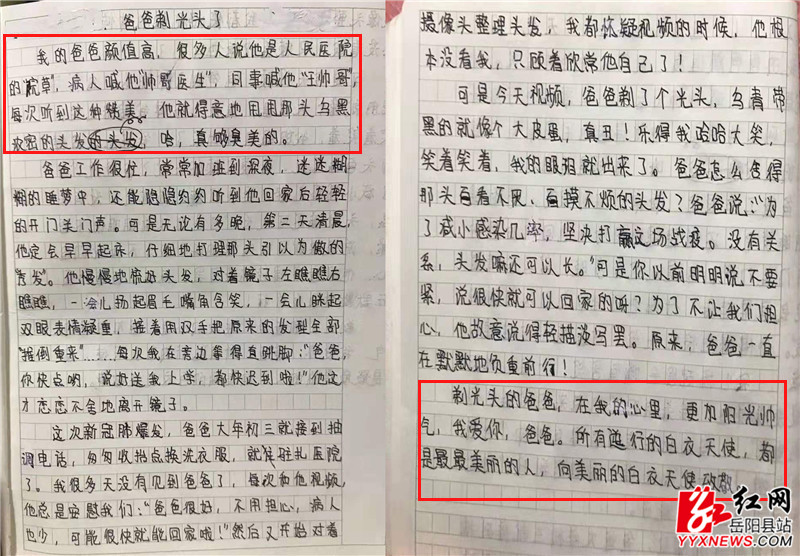 爸爸剃光头了
我的爸爸颜值高，很多人说他是人民医院
的"院草"，病人喊他"帅哥医生"，同事喊他"汪帅哥"，
每次听到这种赞美。他就得意地甩甩那头乌黑
浓密的头发的头发，哈，真够臭美的。
爸爸工作很忙，常常加班到深夜，迷迷糊
糊的睡梦中，还能隐隐约约听到他回家后轻轻
的开门关门声。可是无论有多晚，第二天清晨，
他定会早早起床，仔细地打理那头引以为傲的
"秀发"。他慢慢地梳好头发，对着镜子左瞧瞧右
瞧瞧，一会儿扬起眉毛嘴角含笑，一会儿眯起
双眼表情凝重，接着用双手把原来的发型全部
"推倒重来"……每次我在旁边等得直跳脚："爸爸，
你快点哟，说好送我上学，都快迟到啦！"他这
才恋恋不舍地离开镜子。
这次新冠肺爆发，爸爸大年初三就接到抽
调电话，匆匆收拾点换洗衣服，就驻扎医院
了。我很多天没有见到爸爸了，每次和他视频，
他总是安慰我们："爸爸很好，不用担心，病人
也少，可能很快就能回家啦！"然后又开始对着
摄像头整理头发，我都怀疑视频的时候，他根
本没看我，只顾着欣赏他自己了！
可是今天视频，爸爸剃了个光头，乌青带
黑的就像个大皮蛋，真丑！乐得我哈哈大笑，
笑着笑着，我的眼泪就出来了。爸爸怎么舍得
那头百看不厌、百摸不烦的头发？爸爸说："为
了减小感染几率，坚决打赢这场战疫。没有关
系，头发嘛还可以长。"可是你以前明明说不要
紧，说很快就可以回家的呀？为了不让我们担
心，他故意说得轻描淡写罢。原来，爸爸一直
在默默地负重前行！
剃光头的爸爸，在我的心里，更加阳光帅
气，我爱你，爸爸。所有逆行的白衣天使，都
是最最美丽的人，向美丽的白衣天使致敬
红网
岳阳县站
YYXNEWS.COM